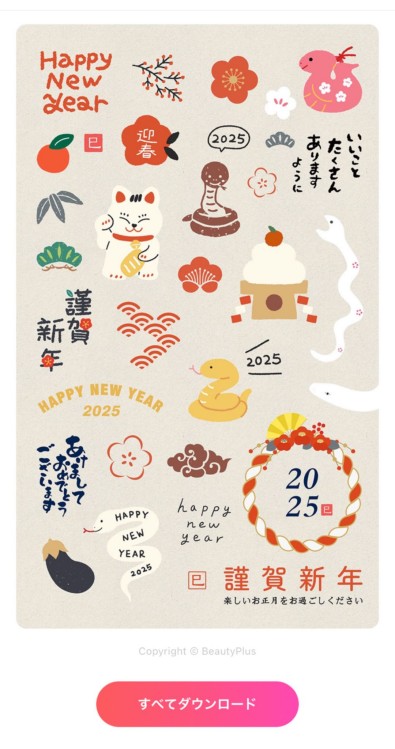 Happy
New
Year
巳
迎
春
2025
いいこと
たくさん
あります
ように
謹
賀
新
年
2025
HAPPY NEW YEAR
2025
あけまして
おめでとう
ございます
20
25
巳
happy
new
year
HAPPY
NEW
YEAR
2025
巳 謹賀新年
楽しいお正月をお過ごしください
Copyright © BeautyPlus
すべてダウンロード